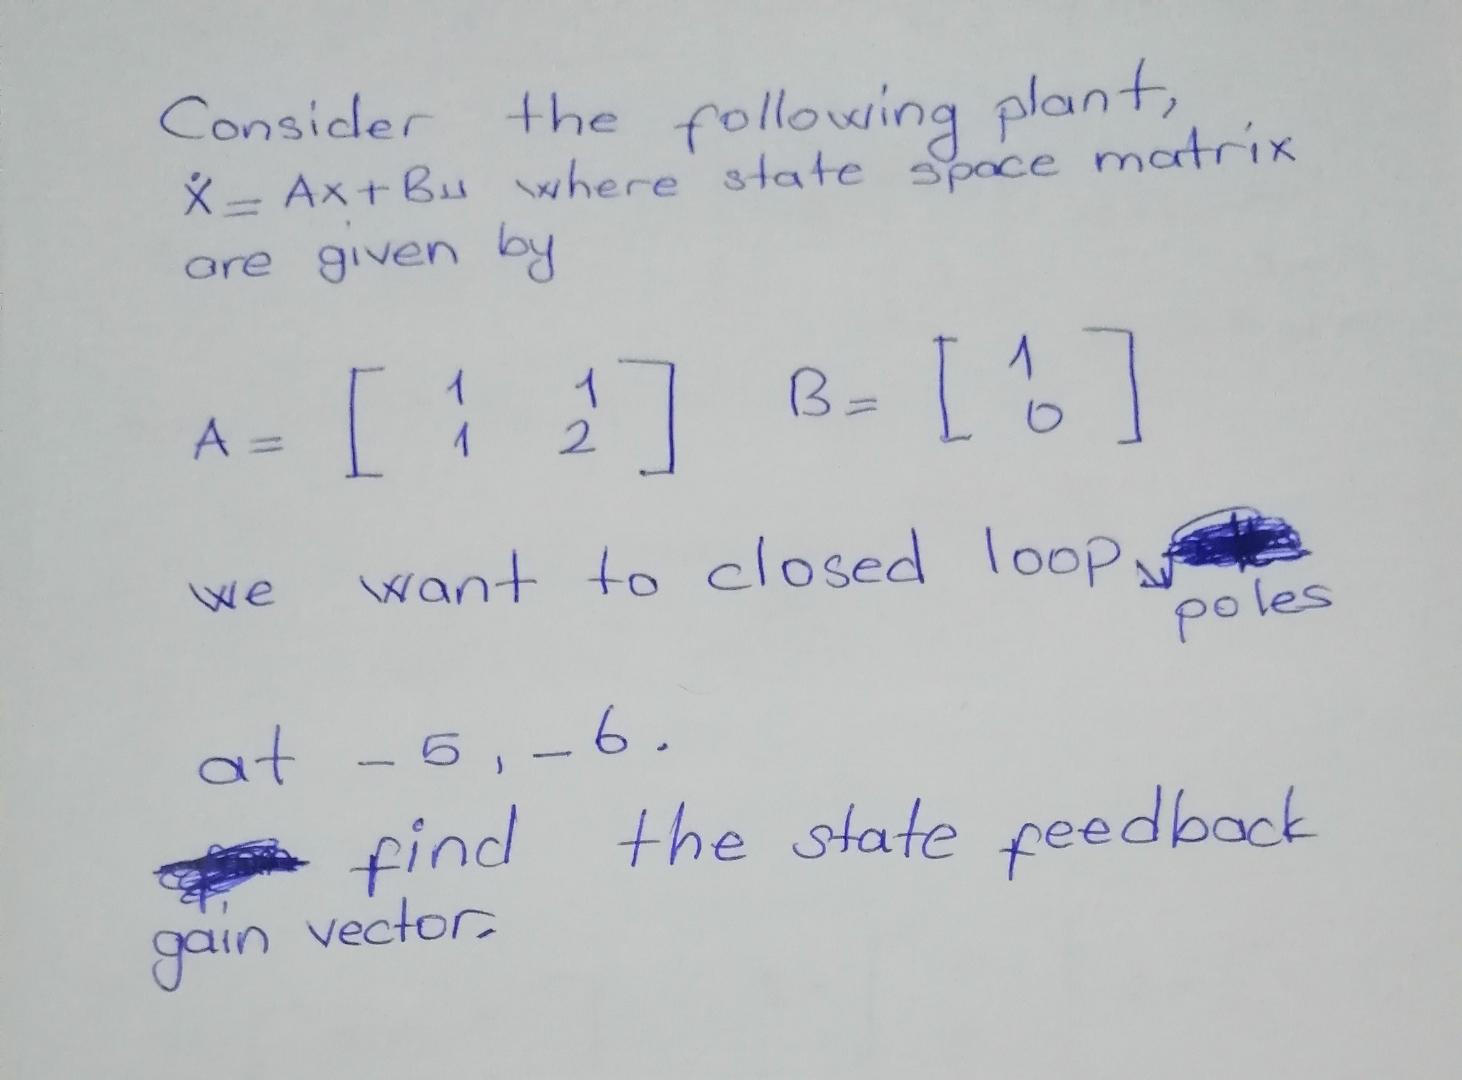 Consider the following plant,
ẋ = Ax + Bu where state space matrix
are given by
A = [ 1 1 B = [ 1
1 2 ] 0 ]
we want to closed loop
poles
at - 5, - 6.
find the state feedback
gain vector.